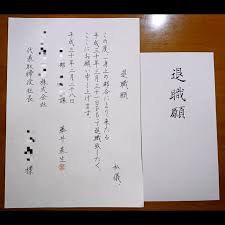 退職願
私儀、
この度、一身上の都合により、来たる
平成三十年三月三十一日をもって退職致したく、
ここにお願い申し上げます。
平成三十年二月二十八日
部 課
藤井 生
株式会社
代表取締役社長 様
退職願